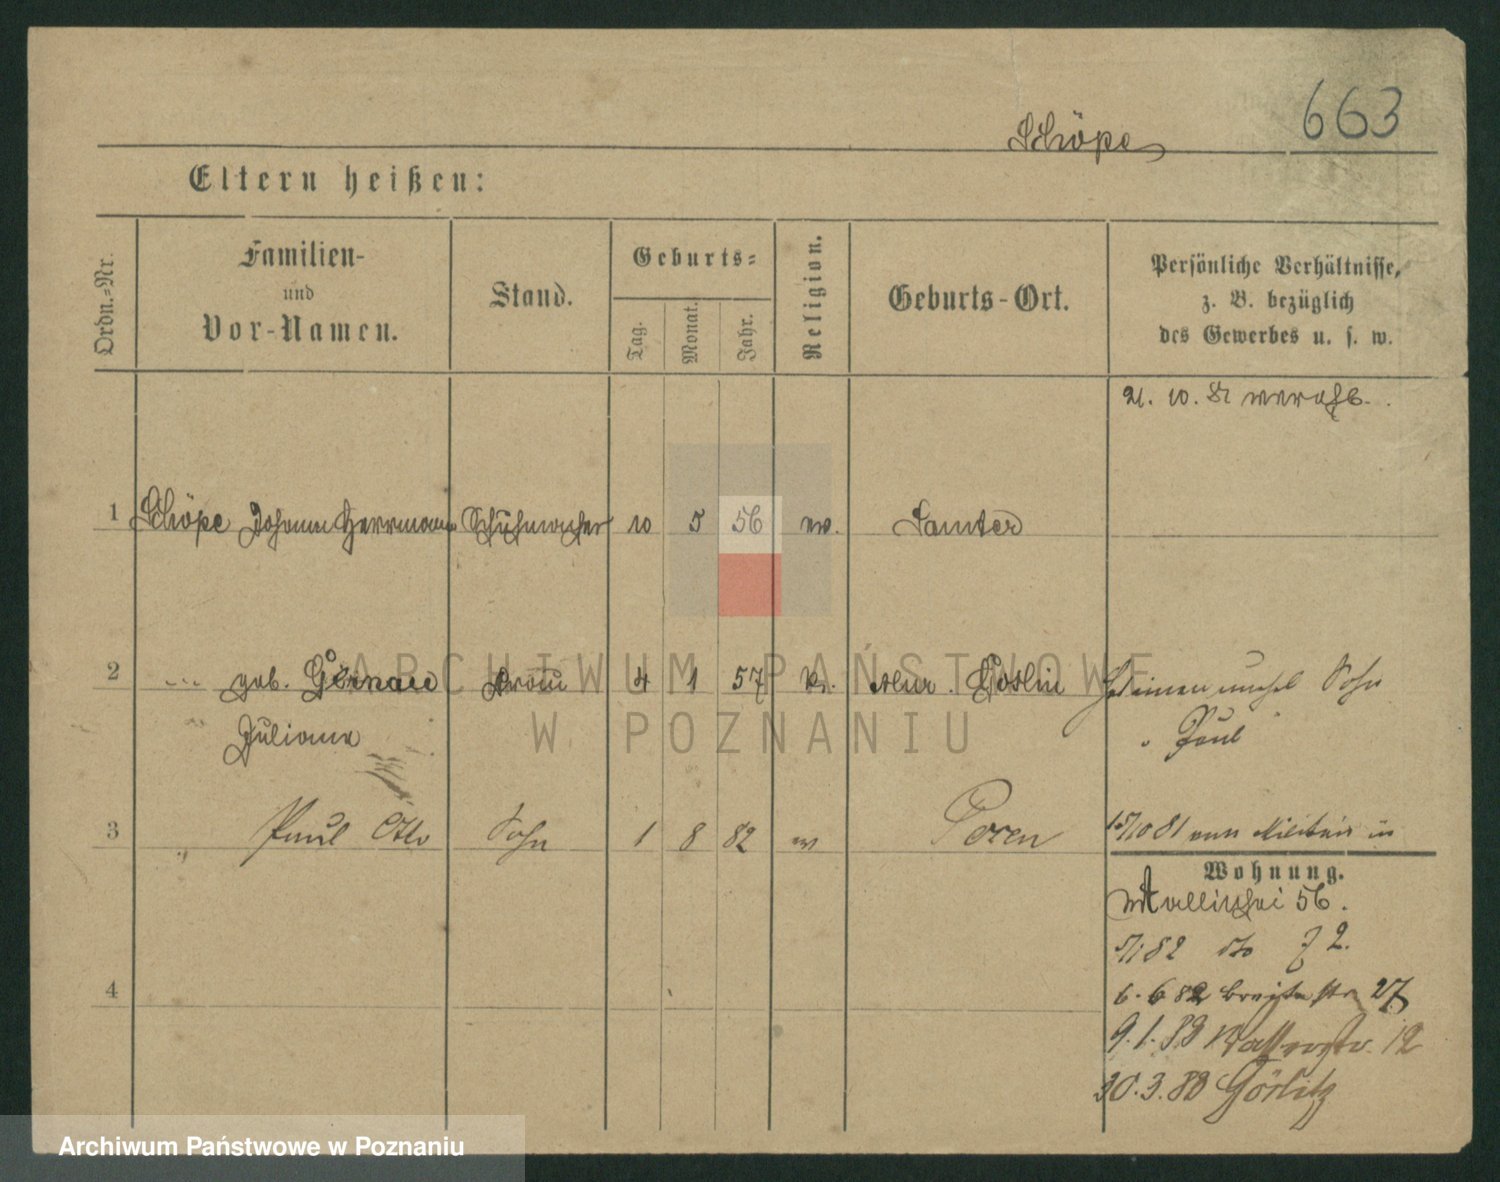 663
Schöpe
Eltern heißen:
Ordn.-Nr.
Familien-
und
Vor-Namen.
Stand.
Geburts-
Tag.
Monat.
Jahr.
Religion.
Geburts-Ort.
Persönliche Verhältnisse,
z. B. bezüglich
des Gewerbes u. s. w.
21. 10. 81
1 Schöpe Johann Herrmann Schuhmacher 10 5 56 ev. Samter
2 geb. Juliane Frau 4 1 57 k. Goslin Sohn
Juliane
Paul
3 Paul Otto Sohn 1 8 82 ev Posen
15/10 81 vom Militair in
Wohnung.
Wallischei 56.
5/1 82 dto 72.
4
6. 6 82 Breitestr 27
9. 1. 83 Wasserstr. 12
30. 3. 83 Görlitz
ARCHIWUM PAŃSTWOWE
W POZNANIU
Archiwum Państwowe w Poznaniu